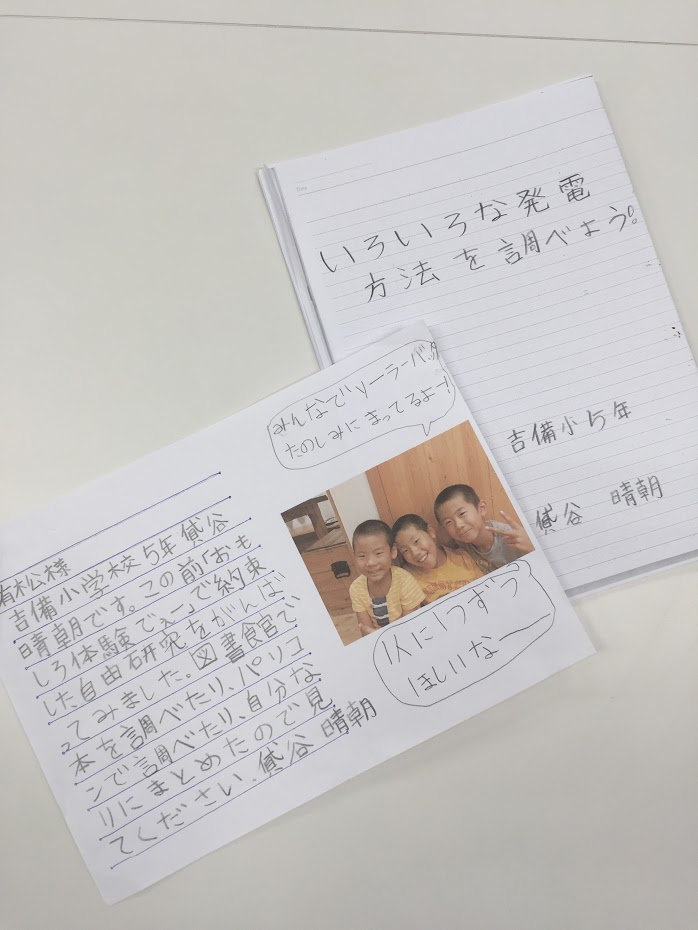 Date
いろいろな発電
方法を調べよう。
吉備小5年
貸谷 晴朝
みんなでソーラーバッグ
たのしみにまってるよー!
有松様
吉備小学校5年貸谷
晴朝です。この前「おも
しろ体験でぇ」で約束
した自由研究をがんば
ってみました。図書館で
本を調べたり、パソコ
ンで調べたり、自分な
りにまとめたので見
てください。貸谷 晴朝
1人に1つずつ
ほしいなー